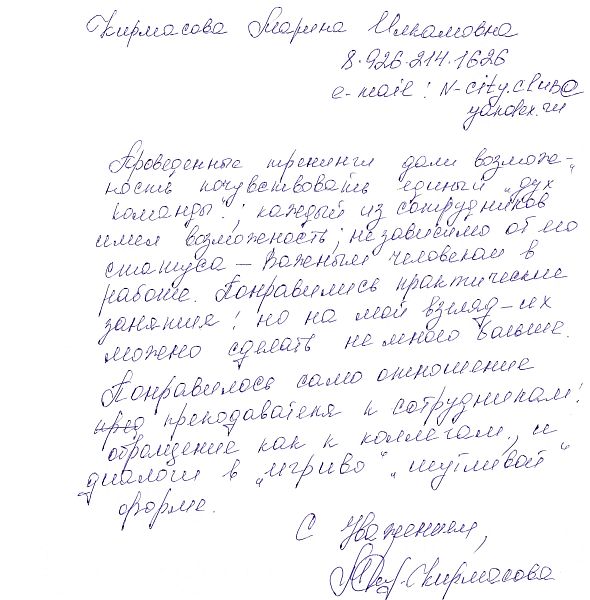 Кирмасова Марина Ильамовна
8.926.214.1626
e-mail: N-city.club@
yandex.ru
Проведенные тренинги дали возмож-
ность почувствовать единый „дух
команды"!; каждый из сотрудников
имел возможность; независимо от его
статуса – Важным человекам в
работе. Понравились практические
занятия! но на мой взгляд – их
можно сделать немного больше.
Понравилось само отношение
пред преподавателя к сотрудникам!
обращение как к коллегам, и
диалоги в „игриво" „шутливой"
форме.
С Уважением,
Кирмасова